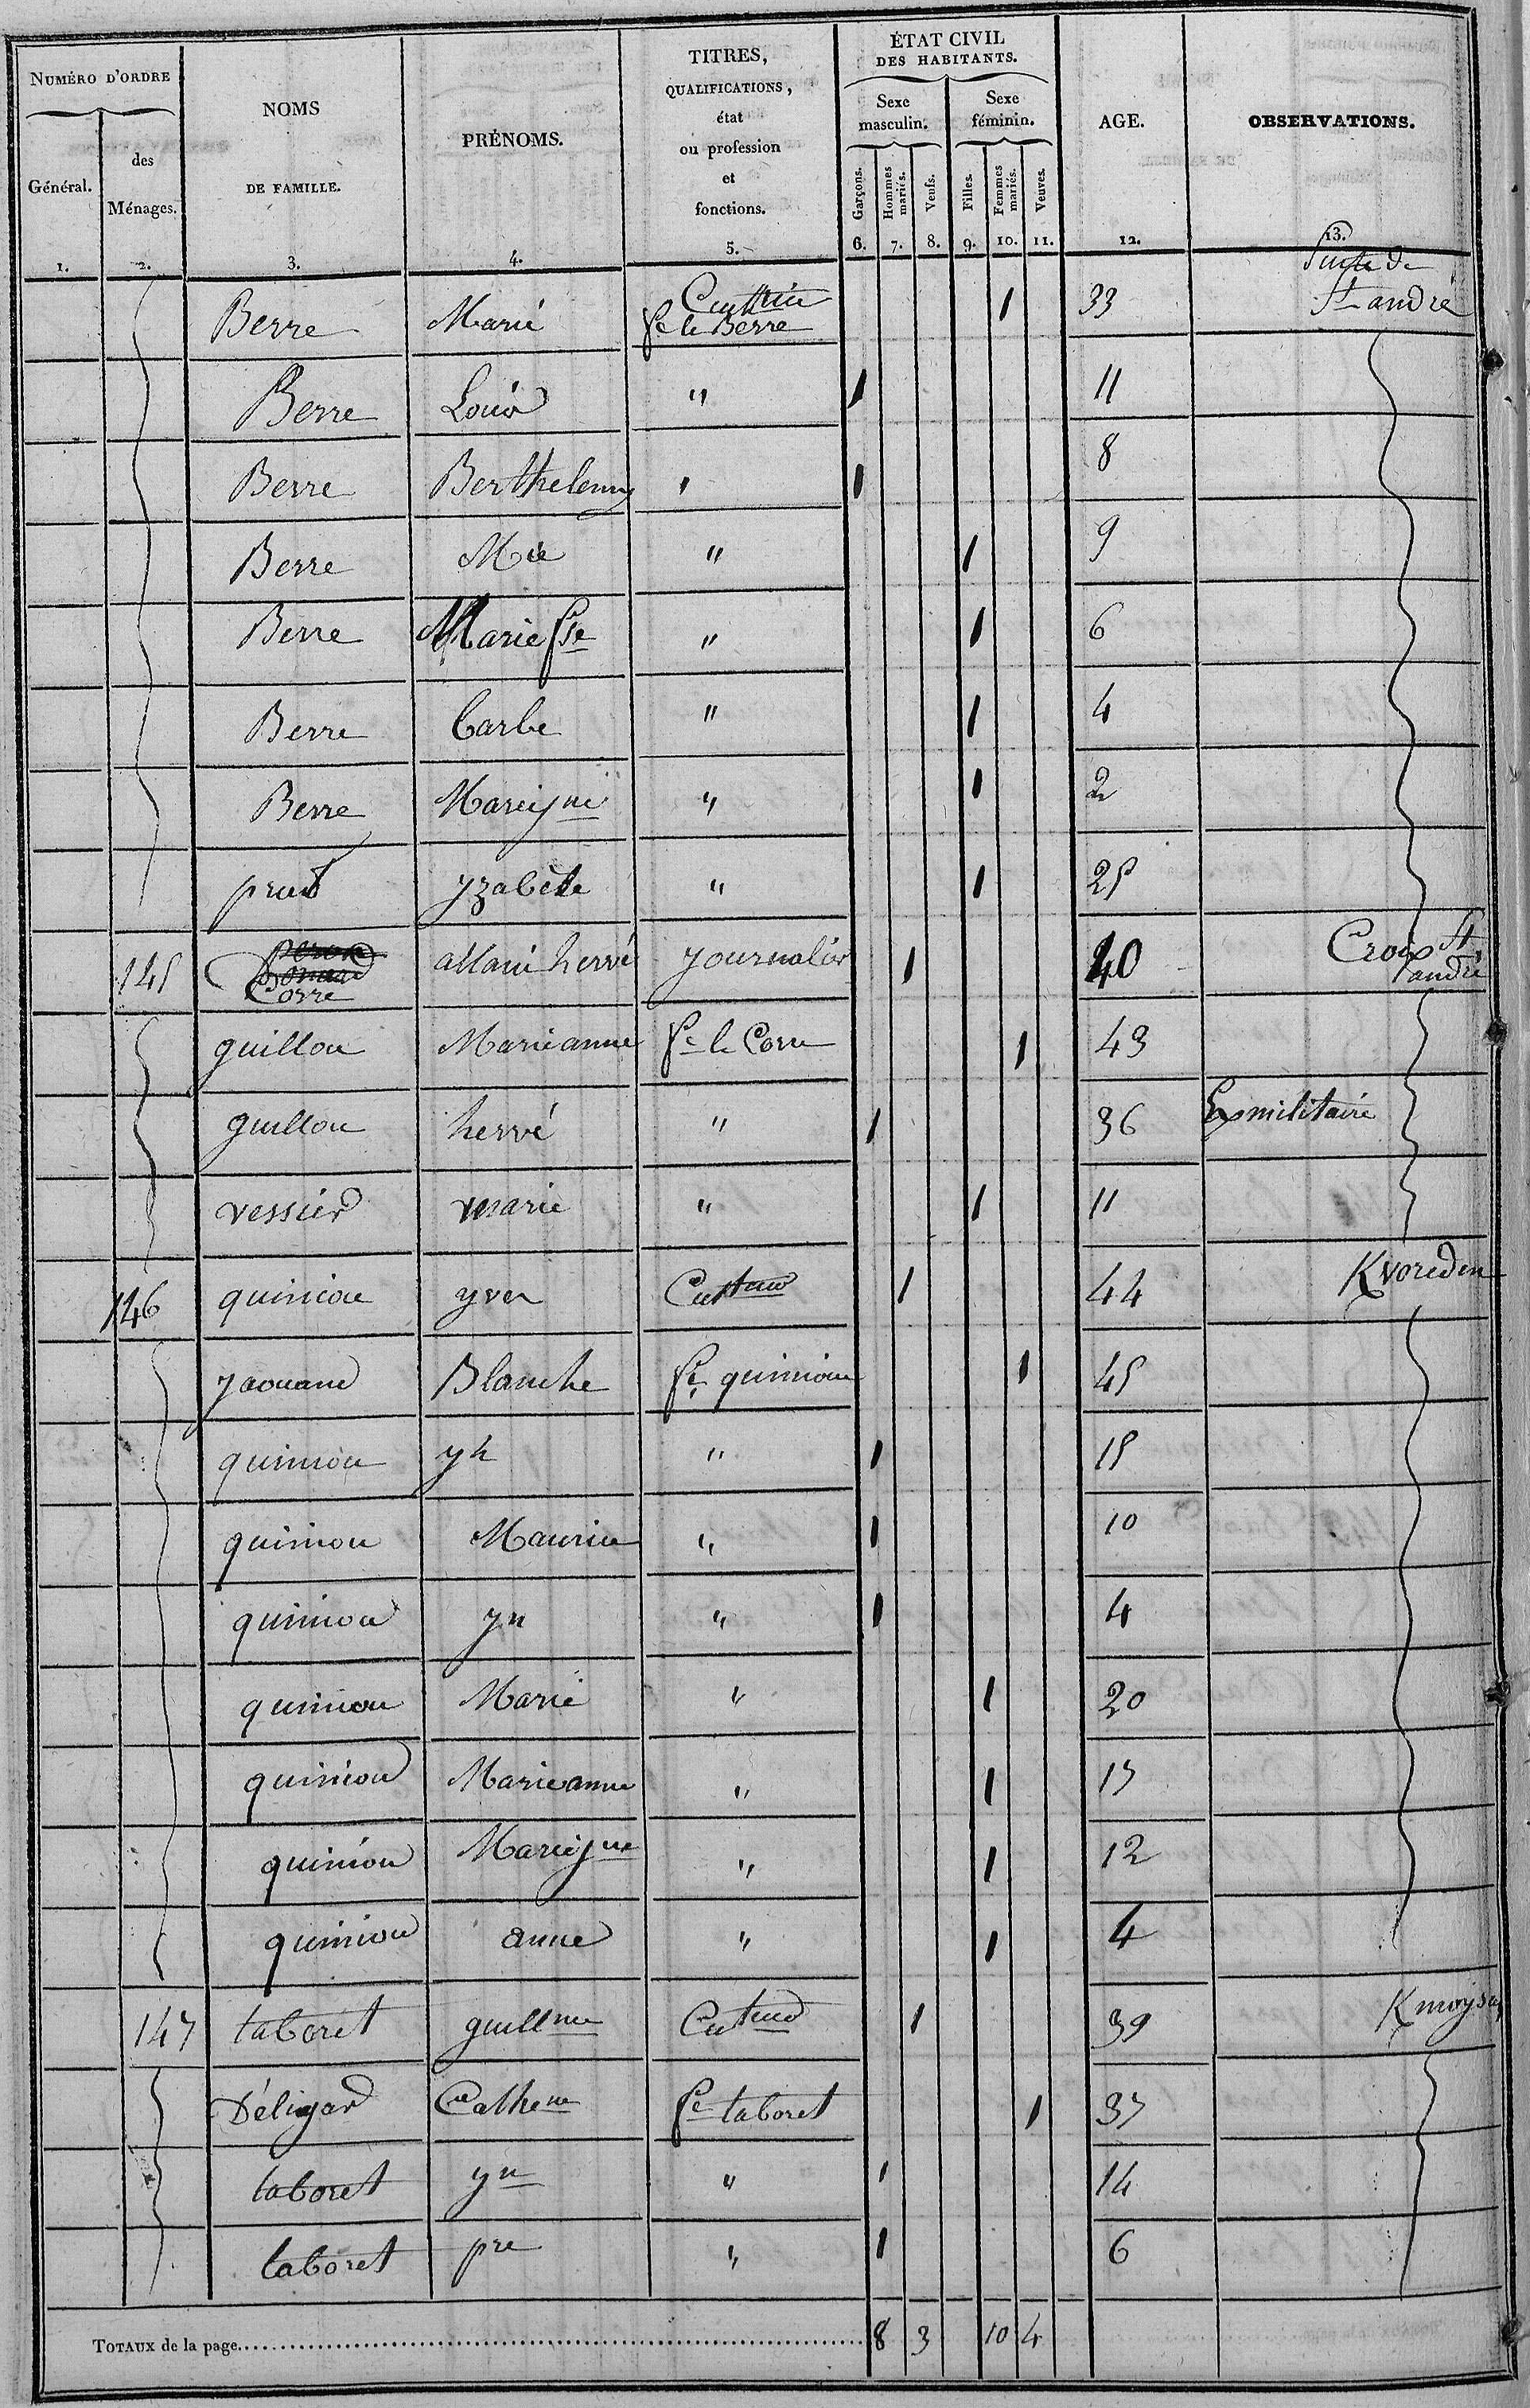 NUMÉRO D'ORDRE
Général.
1.
des
Ménages.
2.
NOMS
DE FAMILLE.
3.
PRÉNOMS.
4.
TITRES,
QUALIFICATIONS,
état
ou profession
et
fonctions.
5.
ÉTAT CIVIL
DES HABITANTS.
Sexe
masculin.
Sexe
féminin.
Garçons.
Hommes
mariés.
Veufs.
Filles.
Femmes
mariés.
Veuves.
6. 7. 8. 9. 10. 11.
AGE.
12.
OBSERVATIONS.
13.
Suite de
St andré
Berre Marie fe le Berre 1 33
Berre Louis " 1 11
Berre Berthelemy " 1 8
Berre Mie " 1 9
Berre Marie fse " 1 6
Berre Barbe " 1 4
Berre Marie jne " 1 2
yzabète " 1 25
145 Corre allain hervé journalier 1 40 Croix St andré
guillou Marieanne fe le Corre 1 43
guillou hervé " 1 36 Ex militaire
vessier marie " 1 11
146 quiniou yves 1 44 Kvoreden
yaouanc Blanche fe quiniou 1 45
quiniou yh " 1 15
quiniou Maurice " 1 10
quiniou yn " 1 4
quiniou Marie " 1 20
quiniou Marieanne " 1 15
quiniou Marie jne " 1 12
quiniou anne " 1 4
147 taboret guillme 1 39
Cathene fe taboret 1 37
taboret yn " 1 14
taboret pre " 1 6
TOTAUX de la page 8 3 10 4